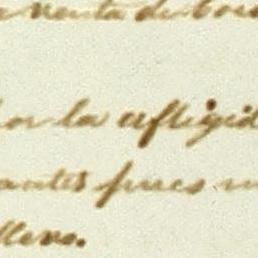 venta de
por la afligid
antes pues
llero.